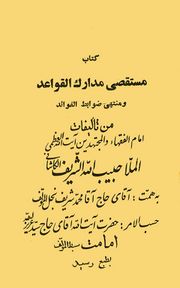 کتاب
مستقصی مدارک القواعد
ومنتهی ضوابط الفوائد
من تألیفات
امام الفقهاء والمجتهدین آیت الله العظمی
الملا حبیب الله الشریف الکاشانی
به همت : آقای حاج آقا محمد شریف نجل المؤلف
حسب الامر : حضرت آیت الله آقای حاج سید عزیز الله
امامت
بطبع رسید